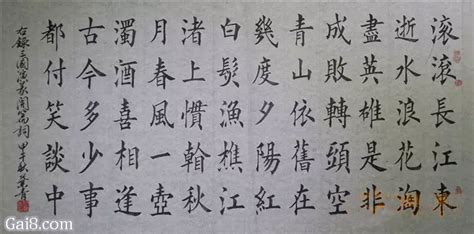 滾滾長江東
逝水浪花淘
盡英雄是非
成敗轉頭空
青山依舊在
幾度夕陽紅
白髮漁樵江
渚上慣看秋
月春風一壺
濁酒喜相逢
古今多少事
都付笑談中
右錄三國演義開篇詞 甲午秋
Gai8.com